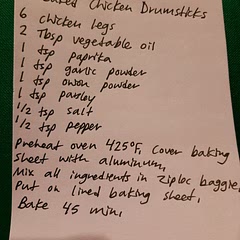 Baked Chicken Drumsticks
6 chicken legs
2 Tbsp vegetable oil
1 tsp paprika
1 tsp garlic powder
1 tsp onion powder
1 tsp parsley
1/2 tsp salt
1/2 tsp pepper
Preheat oven 425°F. Cover baking
sheet with aluminum.
Mix all ingredients in Ziploc baggie.
Put on lined baking sheet.
Bake 45 min.